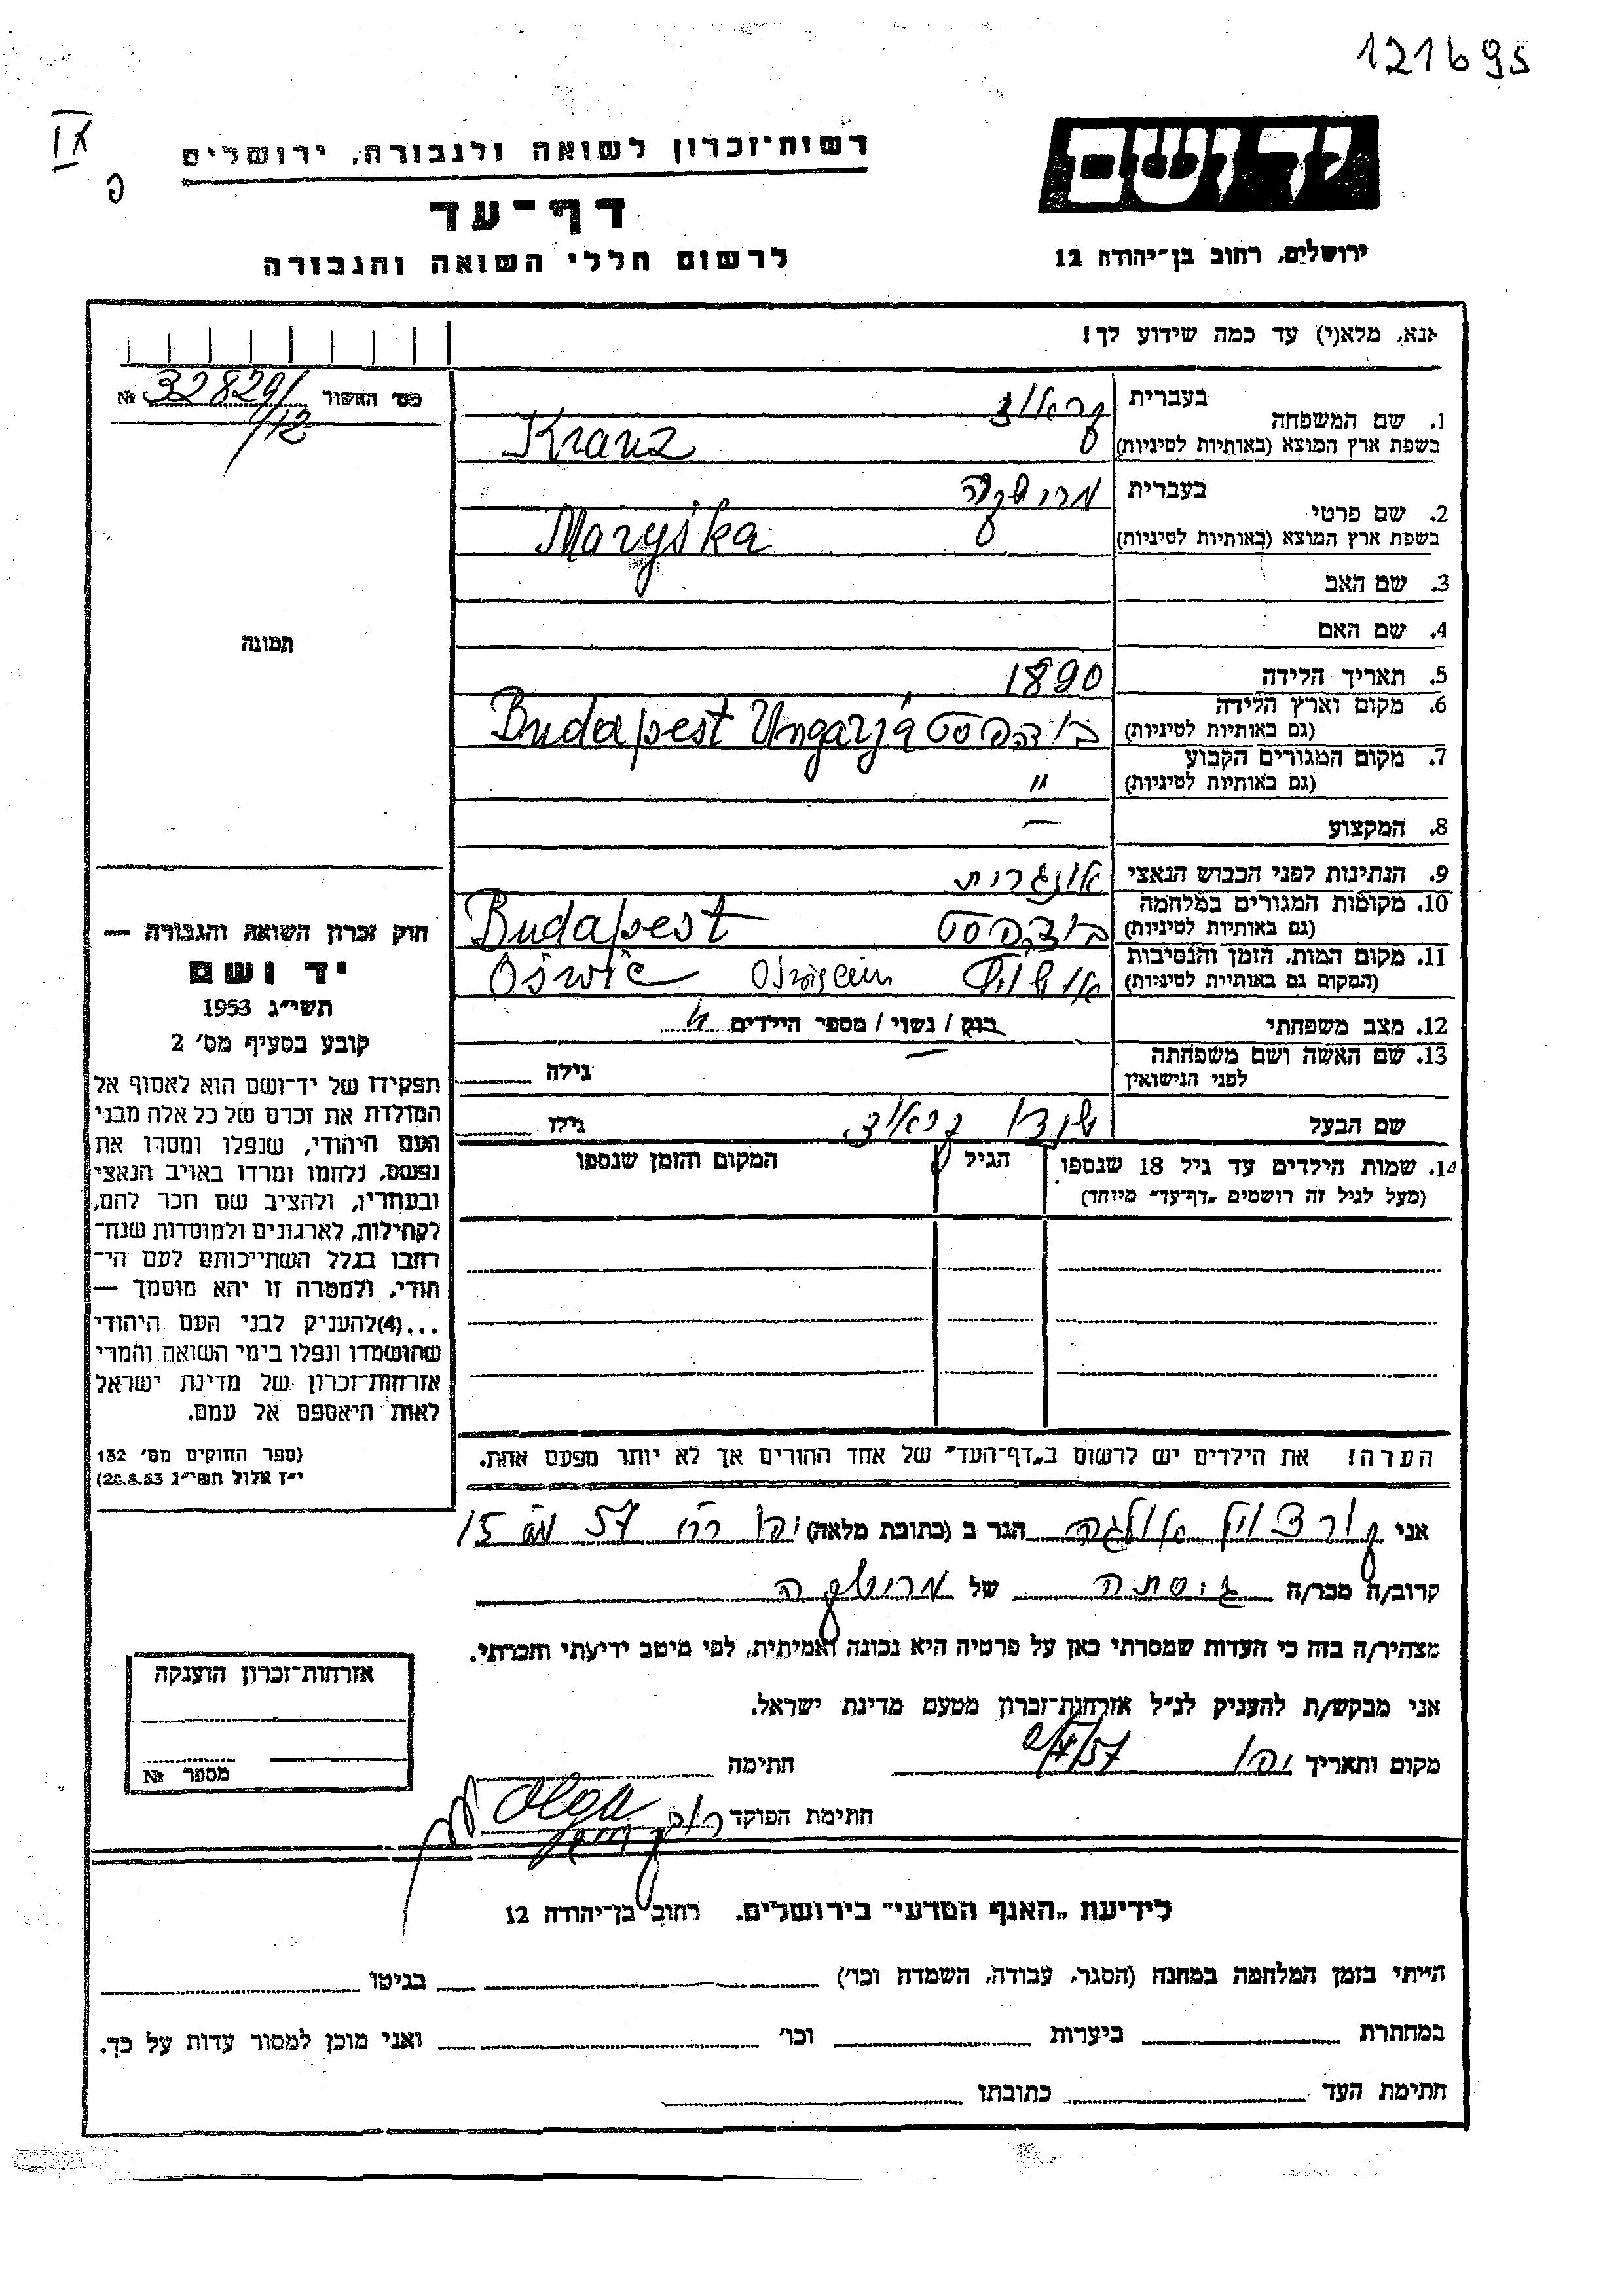 121695
IX
פ
יד ושם
ירושלים, רחוב בן־יהודה 12
רשות־זכרון לשואה ולגבורה, ירושלים
דף־עד
לרשום חללי השואה והגבורה
אנא, מלא(י) עד כמה שידוע לך!
מס׳ האשור № 32829/
/12
תמונה
1. שם המשפחה בעברית קראוז
בשפת ארץ המוצא (באותיות לטיניות) Krauz
2. שם פרטי בעברית מרישקה
בשפת ארץ המוצא (באותיות לטיניות) Maryśka
3. שם האב
4. שם האם
5. תאריך הלידה 1890
6. מקום וארץ הלידה (גם באותיות לטיניות) בודהפסט Budapest Ungarja
7. מקום המגורים הקבוע (גם באותיות לטיניות) "
8. המקצוע —
9. הנתינות לפני הכבוש הנאצי אונגרית
10. מקומות המגורים במלחמה (גם באותיות לטיניות) בודהפסט Budapest
11. מקום המות, הזמן והנסיבות (המקום גם באותיות לטיניות) אושויץ Oświc
12. מצב משפחתי רווק / נשוי / מספר הילדים 4
13. שם האשה ושם משפחתה לפני הנישואין — גילה
שם הבעל קראוז גילו
14. שמות הילדים עד גיל 18 שנספו הגיל המקום והזמן שנספו
(מעל לגיל זה רושמים „דף־עד״ מיוחד)
הערה! את הילדים יש לרשום ב„דף־העד״ של אחד ההורים אך לא יותר מפעם אחת.
חוק זכרון השואה והגבורה —
יד ושם
תשי״ג 1953
קובע בסעיף מס׳ 2
תפקידו של יד־ושם הוא לאסוף אל
המולדת את זכרם של כל אלה מבני
העם היהודי, שנפלו ומסרו את
נפשם, נלחמו ומרדו באויב הנאצי
ובעוזריו, ולהציב שם וזכר להם,
לקהילות, לארגונים ולמוסדות שנח־
רבו בגלל השתייכותם לעם הי־
הודי, ולמטרה זו יהא מוסמך —
...(4)להעניק לבני העם היהודי
שהושמדו ונפלו בימי השואה והמרי
אזרחות־זכרון של מדינת ישראל
לאות היאספם אל עמם.
(ספר החוקים מס׳ 132
י״ז אלול תשי״ג 28.8.53)
אני אולגה הגר ב (כתובת מלאה) 57 15
קרוב/ה מכר/ה גיסתה של מרישקה
מצהיר/ה בזה כי העדות שמסרתי כאן על פרטיה היא נכונה ואמיתית, לפי מיטב ידיעתי והכרתי.
אני מבקש/ת להעניק לנ״ל אזרחות־זכרון מטעם מדינת ישראל.
מקום ותאריך יפו חתימה
חתימת הפוקד Olga
אזרחות־זכרון הוענקה
מספר №
לידיעת „האגף המדעי״ בירושלים, רחוב בן־יהודה 12
הייתי בזמן המלחמה במחנה (הסגר, עבודה, השמדה וכו׳) בגיטו
במחתרת ביערות וכו׳ ואני מוכן למסור עדות על כך.
חתימת העד כתובתו